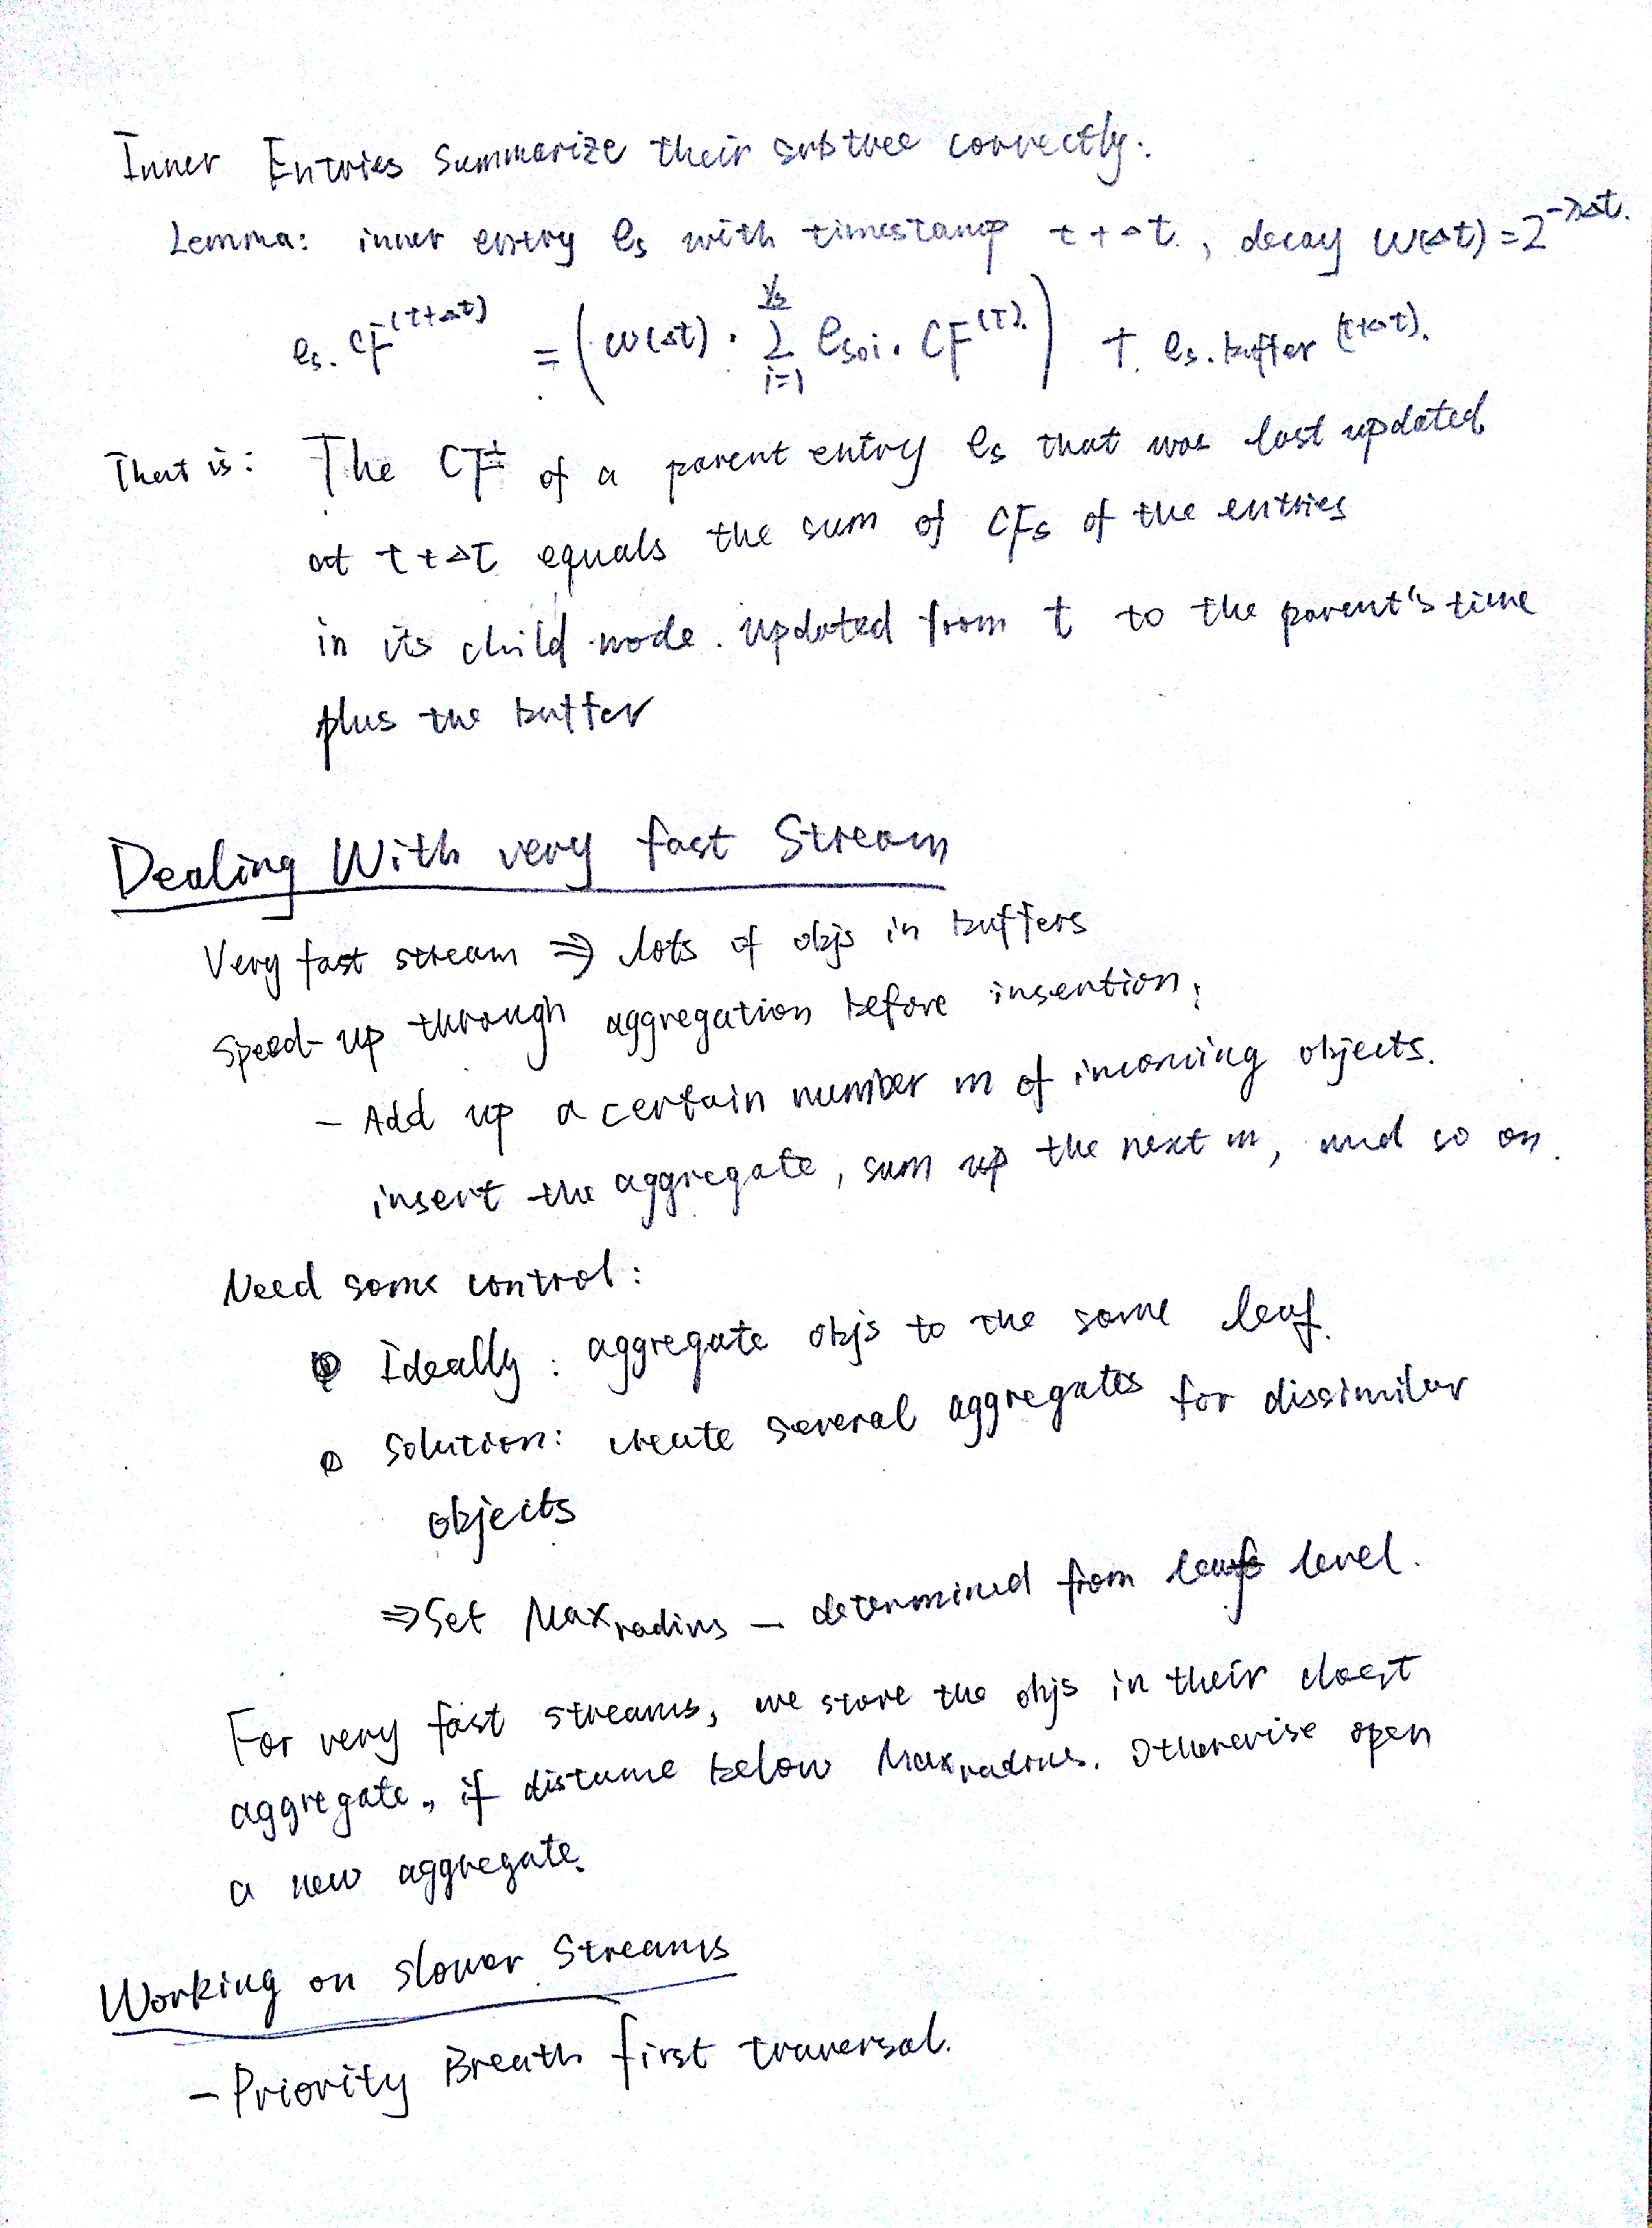 Inner Entries Summarize their subtree correctly.
Lemma: inner entry es with timestamp t+Δt, decay w(Δt)=2^-λΔt.
es.CF^(t+Δt) = (w(Δt) · Σ i=1 νs esoi.CF^(t)) + es.buffer^(t+Δt).
That is: The CF of a parent entry es that was last updated
at t+Δt equals the sum of CFs of the entries
in its child node. updated from t to the parent's time
plus the buffer
Dealing With very fast Stream
Very fast stream ⇒ lots of objs in buffers
Speed-up through aggregation before insention;
- Add up a certain number m of incoming objects.
insert the aggregate, sum up the next m, and so on.
Need some control:
• Ideally: aggregate objs to the same leaf.
• Solution: create several aggregates for dissimilar
objects
⇒ Set Maxradius - determined from leaf level.
For very fast streams, we store the objs in their cloest
aggregate, if distance below Maxradius. Otherwise open
a new aggregate.
Working on slower Streams
- Priority Breath first traversal.